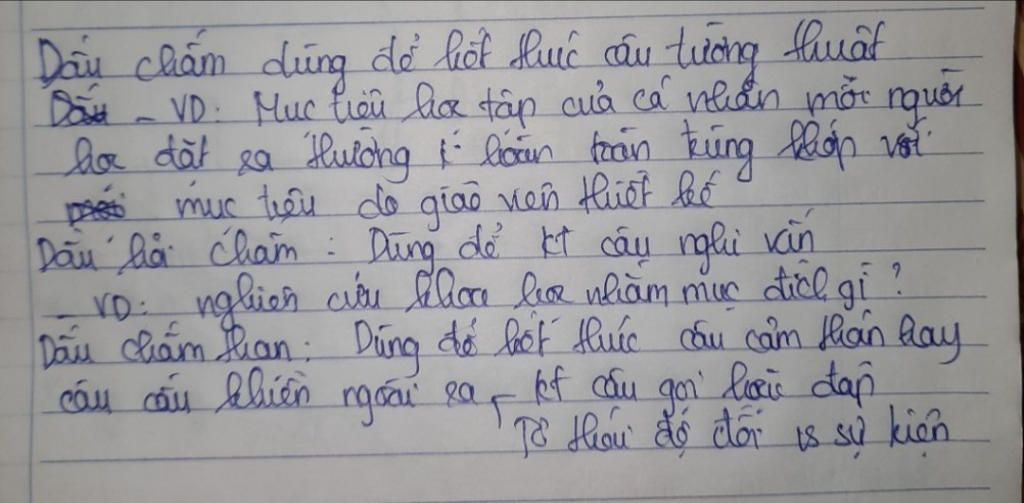 Dấu chấm dùng để kết thúc câu tường thuật
- VD: Mục tiêu học tập của cá nhân mỗi người
học đặt ra thường k hoàn toàn trùng khớp với
mục tiêu do giáo viên thiết kế
Dấu hỏi chấm: Dùng để kt câu nghi vấn
- VD: nghiên cứu khoa học nhằm mục đích gì?
Dấu chấm than: Dùng để kết thúc câu cảm thán hay
câu cầu khiến ngoài ra - kt câu gọi hoặc đáp
Tỏ thái độ đối vs sự kiện